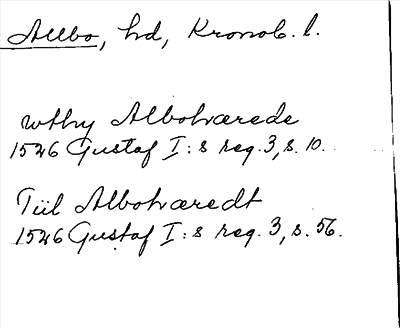 Allbo, hd, Kronob. l.
wthy Albohærede
1526 Gustaf I:s reg. 3, s. 10.
Tiil Albohæredt
1526 Gustaf I:s reg. 3, s. 56.